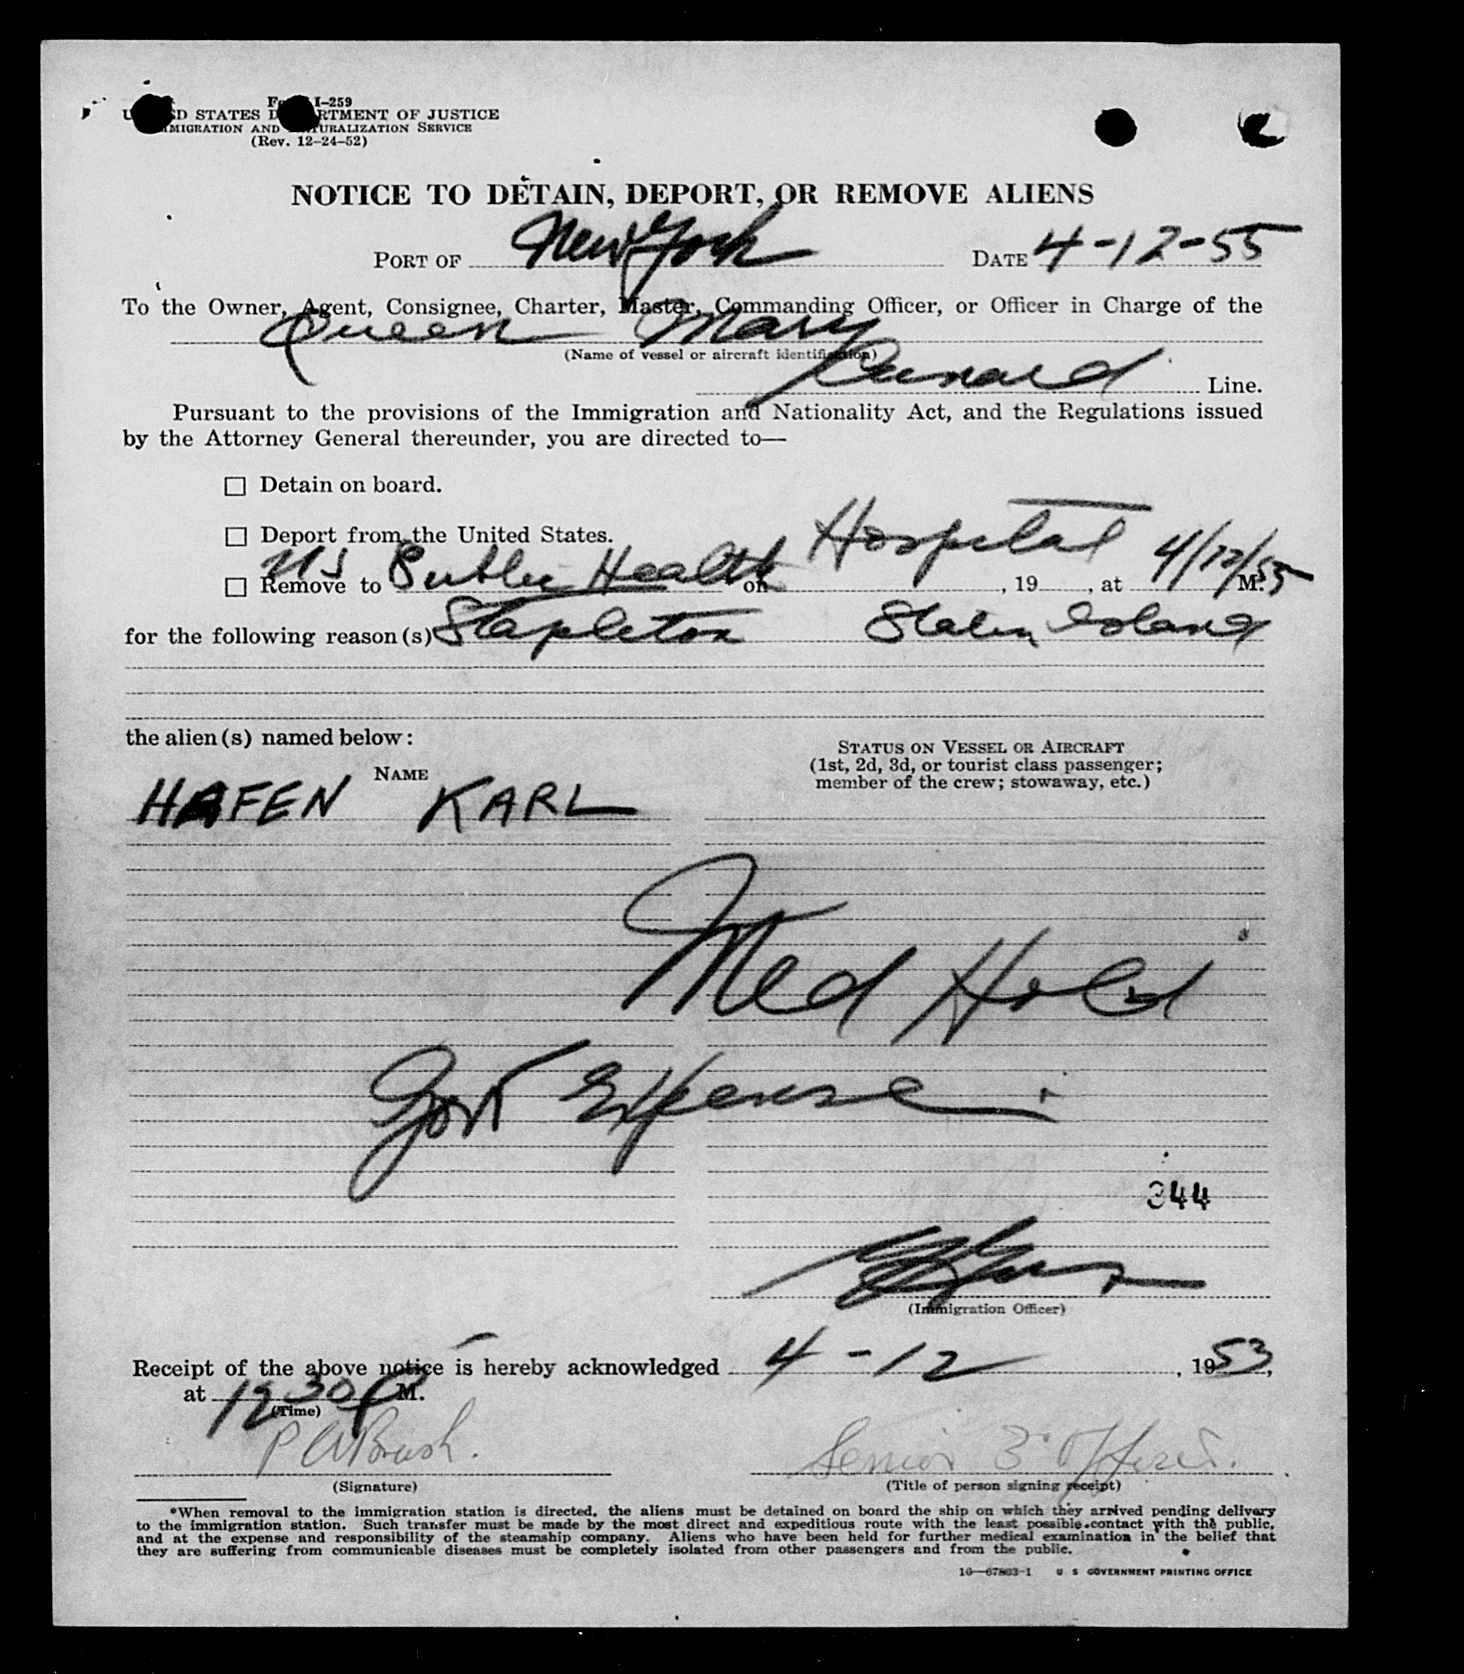 Form I-259
UNITED STATES DEPARTMENT OF JUSTICE
IMMIGRATION AND NATURALIZATION SERVICE
(Rev. 12-24-52)
NOTICE TO DETAIN, DEPORT, OR REMOVE ALIENS
PORT OF New York DATE 4-12-55
To the Owner, Agent, Consignee, Charter, Master, Commanding Officer, or Officer in Charge of the
Queen Mary
(Name of vessel or aircraft identification)
Cunard Line.
Pursuant to the provisions of the Immigration and Nationality Act, and the Regulations issued
by the Attorney General thereunder, you are directed to—
☐ Detain on board.
☐ Deport from the United States.
☐ Remove to US Public Health on Hospital, 19, at 4/12/55 M.
for the following reason(s) Stapleton Staten Island
the alien(s) named below:
NAME
STATUS ON VESSEL OR AIRCRAFT
(1st, 2d, 3d, or tourist class passenger;
member of the crew; stowaway, etc.)
HAFEN KARL
Med Hold
Govt Expense
344
(Immigration Officer)
Receipt of the above notice is hereby acknowledged 4-12, 1953,
at 12 30 P M.
(Time)
P A Brush.
Senior 3° Officer.
(Signature)
(Title of person signing receipt)
*When removal to the immigration station is directed, the aliens must be detained on board the ship on which they arrived pending delivery
to the immigration station. Such transfer must be made by the most direct and expeditious route with the least possible contact with the public,
and at the expense and responsibility of the steamship company. Aliens who have been held for further medical examination in the belief that
they are suffering from communicable diseases must be completely isolated from other passengers and from the public.
16—67803-1 U S GOVERNMENT PRINTING OFFICE